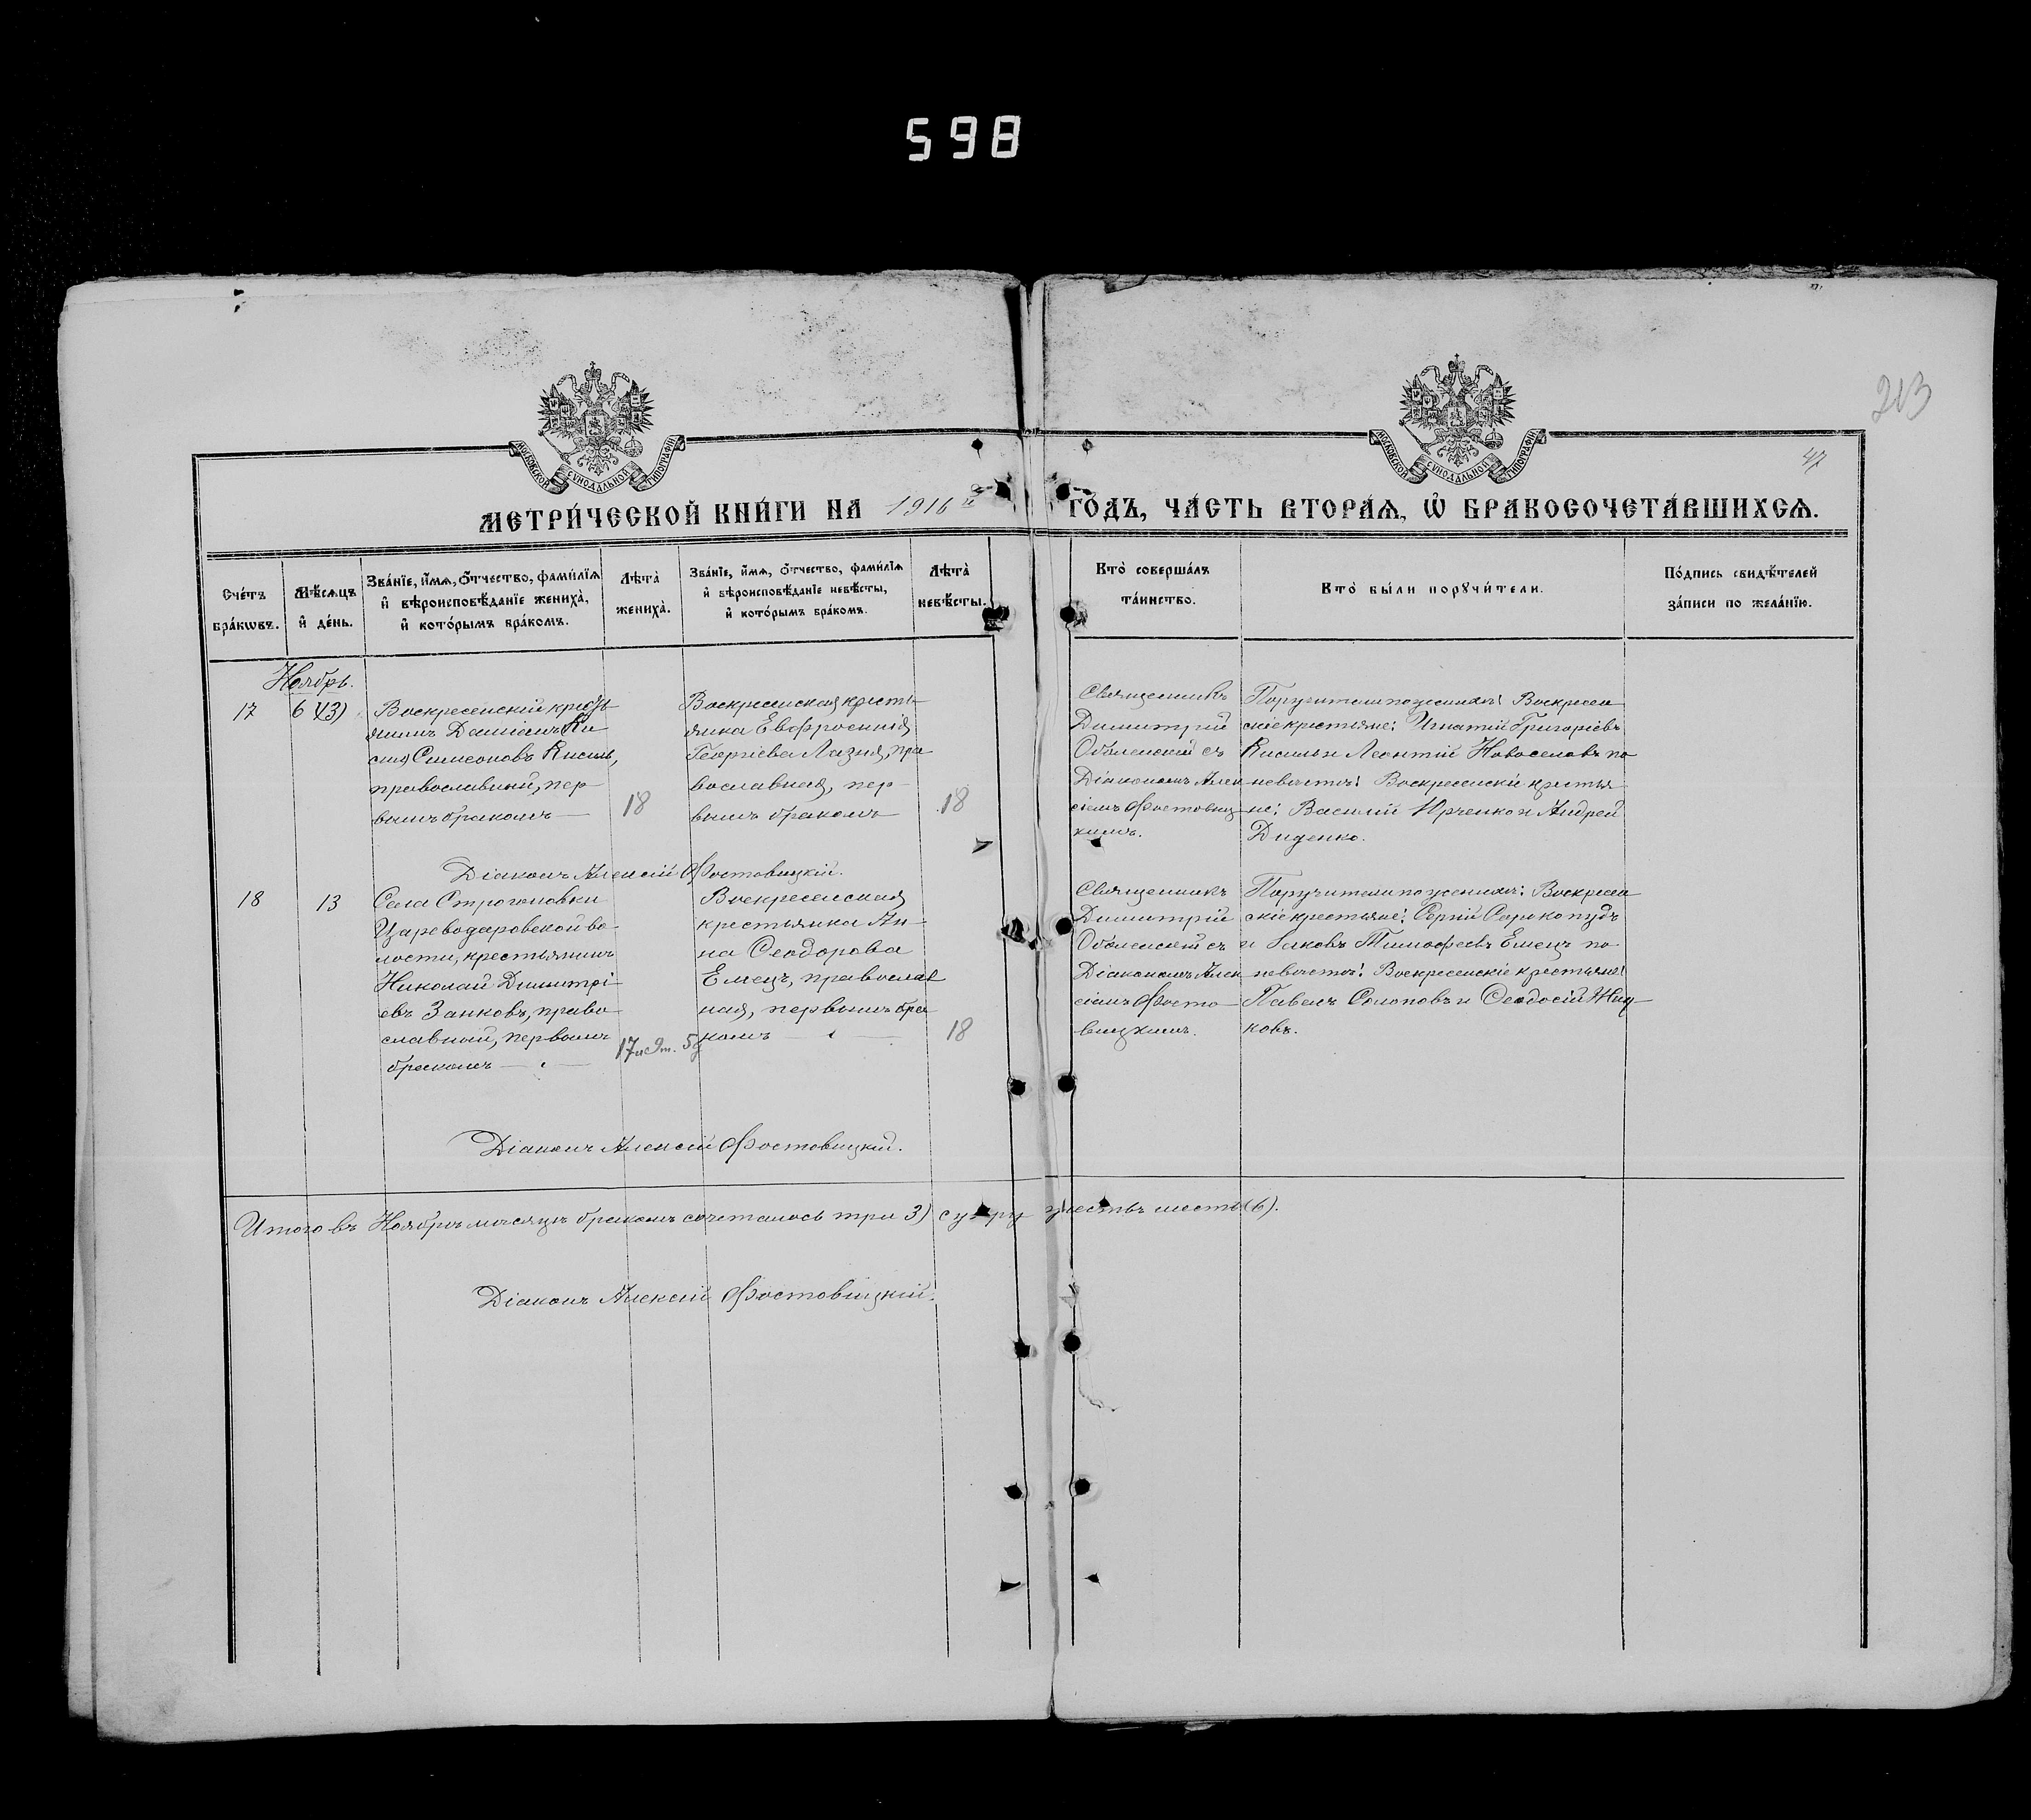 598
213
47
МОСКОВСКОЙ СУНОДАЛЬНОЙ ТИПОГРАФІИ
МОСКОВСКОЙ СУНОДАЛЬНОЙ ТИПОГРАФІИ
МЕТРИ́ЧЕСКОЙ КНИ́ГИ НА 1916 й
ГО́ДЪ, ЧА́СТЬ ВТОРА́Ѧ, Ѽ БРАКОСОЧЕТА́ВШИХСѦ.
Сче́тъ бра́кѡвъ.
Мѣ́сѧцъ и҆ де́нь.
Зва́нїе, и҆́мѧ, ѻ҆́тчество, фами́лїѧ
и҆ вѣроисповѣ́данїе жениха̀,
и҆ кото́рымъ бра́комъ.
Лѣта̀ жениха̀.
Зва́нїе, и҆́мѧ, ѻ҆́тчество, фами́лїѧ
и҆ вѣроисповѣ́данїе невѣ́сты,
и҆ кото́рымъ бра́комъ.
Лѣта̀ невѣ́сты.
Кто̀ соверша́лъ
та́инство.
Кто̀ бы́ли порꙋчи́тели.
По́дпись свидѣ́телей
за́писи по жела́нїю.
Ноябрь.
17
6
Воскресенскій кресть
янинъ Даміанъ
Симеоновъ Кисиль,
православный, пер-
вымъ бракомъ —
18
Воскресенская кресть-
янка Евфросинія
Георгіева Лазня, пра
вославная, пер-
вымъ бракомъ
18
Священникъ
Димитрій
Оболенскій съ
Діакономъ Алек
сіемъ Фостовиц-
кимъ.
Поручители по женихѣ: Воскресен
скіе крестьяне: Игнатій Григоріевъ
Кисиль и Леонтій Новоселовъ по
невѣстѣ: Воскресенскіе крестья
не: Василій Юрченко и Андрей
Диденко.
Діаконъ Алексій Фостовицкій.
18
13
Села Строгоновки
Цареводаровской во-
лости, крестьянинъ
Николай Димитрі-
евъ Занковъ, право-
славный, первымъ
бракомъ —
17
Воскресенская
крестьянка Ан-
на Ѳеодорова
Емецъ, православ
ная, первымъ бра
комъ —
18
Священникъ
Димитрій
Оболенскій съ
Діакономъ Алек
сіемъ Фосто-
вицкимъ.
Поручители по женихѣ: Воскресен
скіе крестьяне: Сергій Сорокопудъ
и Іаковъ Тимофеевъ Емецъ по
невѣстѣ: Воскресенскіе крестьяне:
Павелъ Солоповъ и Ѳеодосій Жид-
ковъ.
Діаконъ Алексій Фостовицкій.
Итого въ Ноябрѣ мѣсяцѣ бракомъ сочеталось три 3) супружествъ шесть (6).
Діаконъ Алексій Фостовицкій.